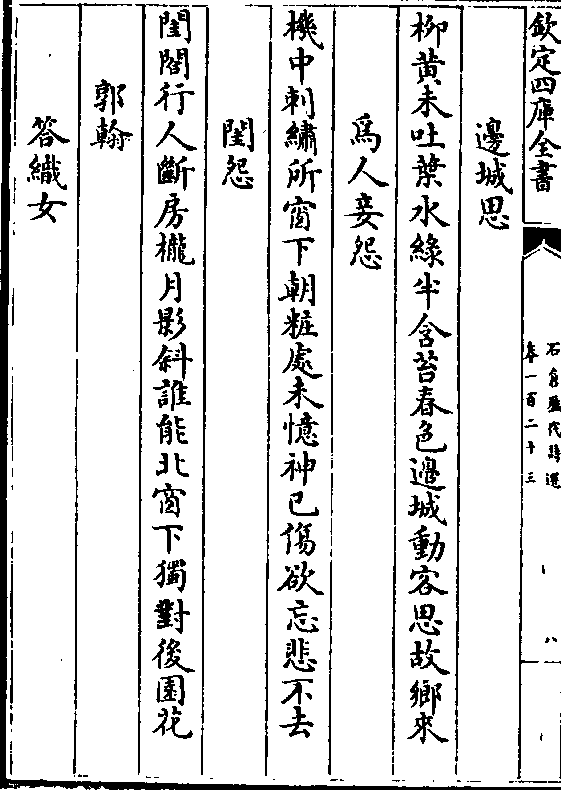 欽定四庫全書
石倉歷代詩選
卷一百二十三
八
邊城思
柳黃未吐葉水綠半含苔春色邊城動客思故鄉來
爲人妾怨
機中刺繡所窗下朝粧處未憶神已傷欲忘悲不去
閨怨
閨閤行人斷房櫳月影斜誰能北窗下獨對後園花
郭翰
答織女